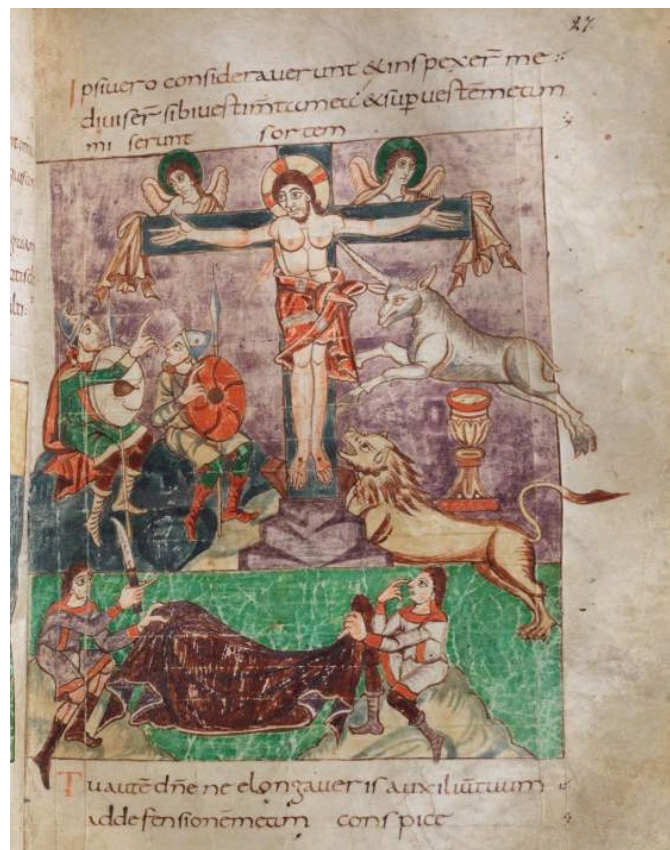 27
Ipsi uero considerauerunt & inspexer̄ me
diuiser̄ sibi uestim̄ta mea & sup̄ uestē meam
miserunt sortem
Tu autē dn̄e ne elongaueris auxiliū tuum
ad defensionē meam conspice